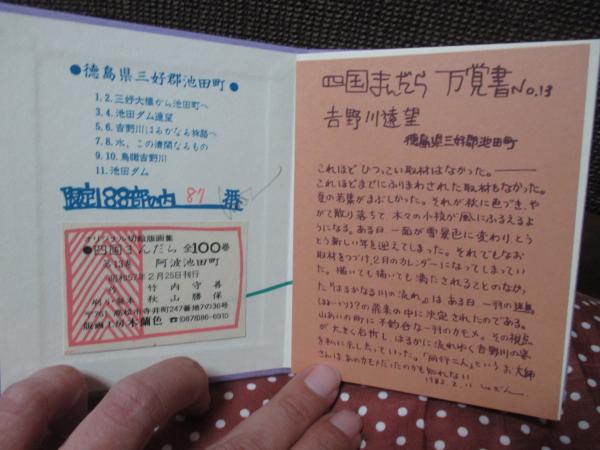 ●徳島県三好郡池田町●
1.2.三好大橋から池田町へ
3.4.池田ダム遠望
5.6.吉野川はるかなる旅路へ
7.8.水、この清閑なるもの
9.10.鳥瞰吉野川
11.池田ダム
限定188部の内 87 番
オリジナル切絵版画集
●四国まんだら 全100巻
第13巻 阿波池田町
昭和57年2月25日刊行
竹内守善
刷り・製本 秋山勝保
〒761 高松市寺井町247番地7の36号
版画工房木蘭色 ☎(0878)86-6910
四国まんだら 万覚書No.13
吉野川遠望
徳島県三好郡池田町
これほどひつっこい取材はなかった。
これほどまでにふりまわされた取材もなかった。
夏の若葉がまぶしかった。それが秋に色づき、や
がて散り落ちて、木々の小枝が風にふるえるよ
うになる。ある日一面が雪景色に変わりとう
とう新しい年を迎えてしまった。それでもなお
取材をつづけ、2月のカレンダーになってしまってい
た。描いても描いても満たされることのなか
った『はるかなる川の流れ』は ある日 一羽の
の飛来の中に決定されたのである。
山あいの町に 不釣合な一羽のカモメ。その視点
が大きく右折し はるかに流れゆく吉野川の姿
を私に示し去っていった。「同行二人」という お大師
さんは あのカモメだったのかも知れない
1982.2.11